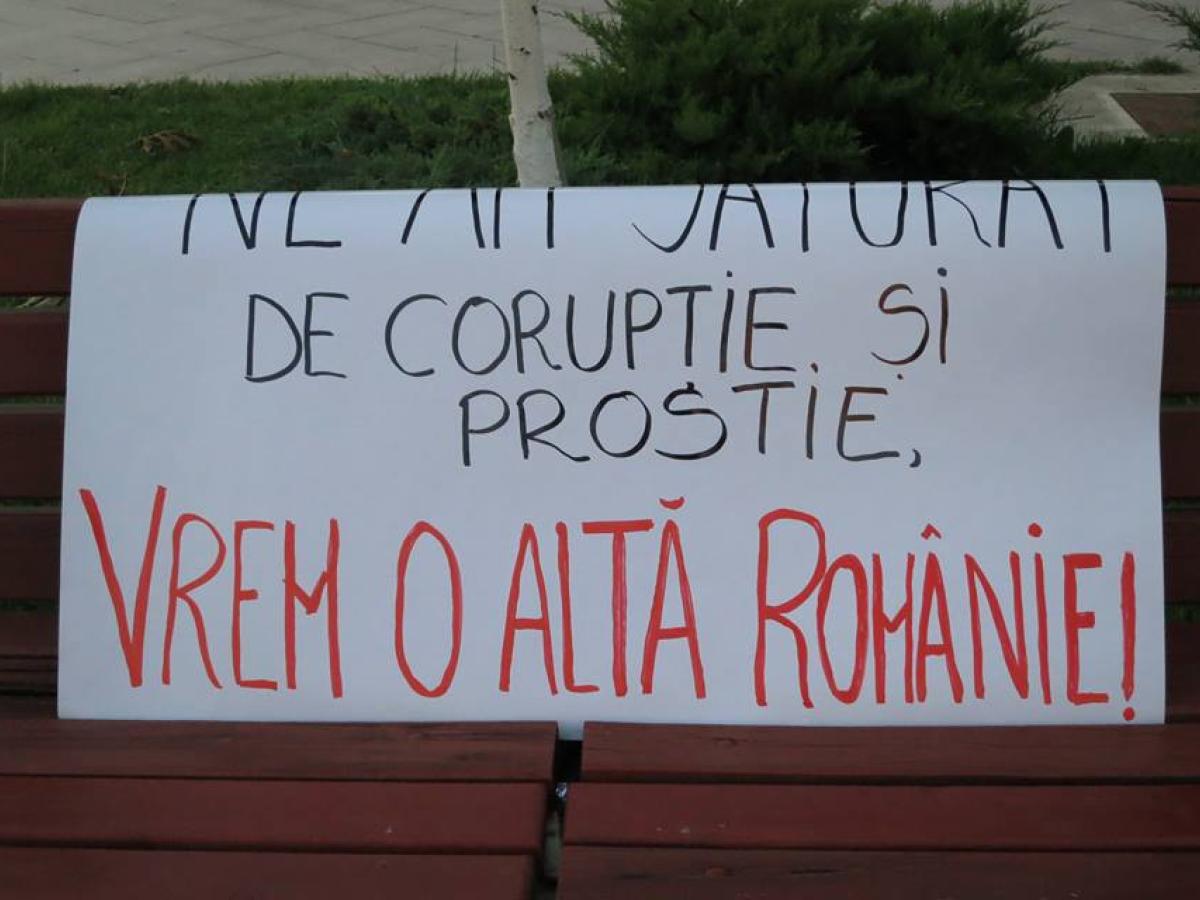 NE AM SATURAT
DE CORUPTIE. ȘI
PROSTIE,
VREM O ALTĂ ROMÂNIE!